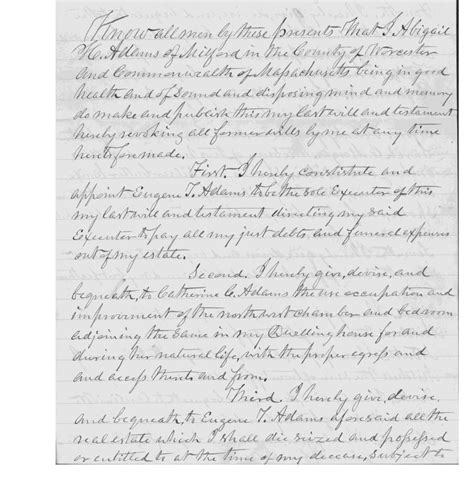 Know all men by these presents That I Abigail
H. Adams of Milford in the County of Worcester
and Commonwealth of Massachusetts being in good
health and of sound and disposing mind and memory
do make and publish this my last will and testament
hereby revoking all former wills by me at any time
heretofore made.
First. I hereby constitute and
appoint Eugene T. Adams to be the sole Executor of this
my last will and testament directing my said
Executor to pay all my just debts, and funeral expenses
out of my estate.
Second. I hereby give, devise, and
bequeath, to Catherine C. Adams the use occupation and
improvement of the northwest chamber and bedroom
adjoining the same in my Dwelling house for and
during her natural life, with the proper egress and
and access thereto and from.
Third. I hereby give, devise
and bequeath, to Eugene T. Adams aforesaid all the
real estate which I shall die seized and possessed
or entitled to at the time of my decease, subject to